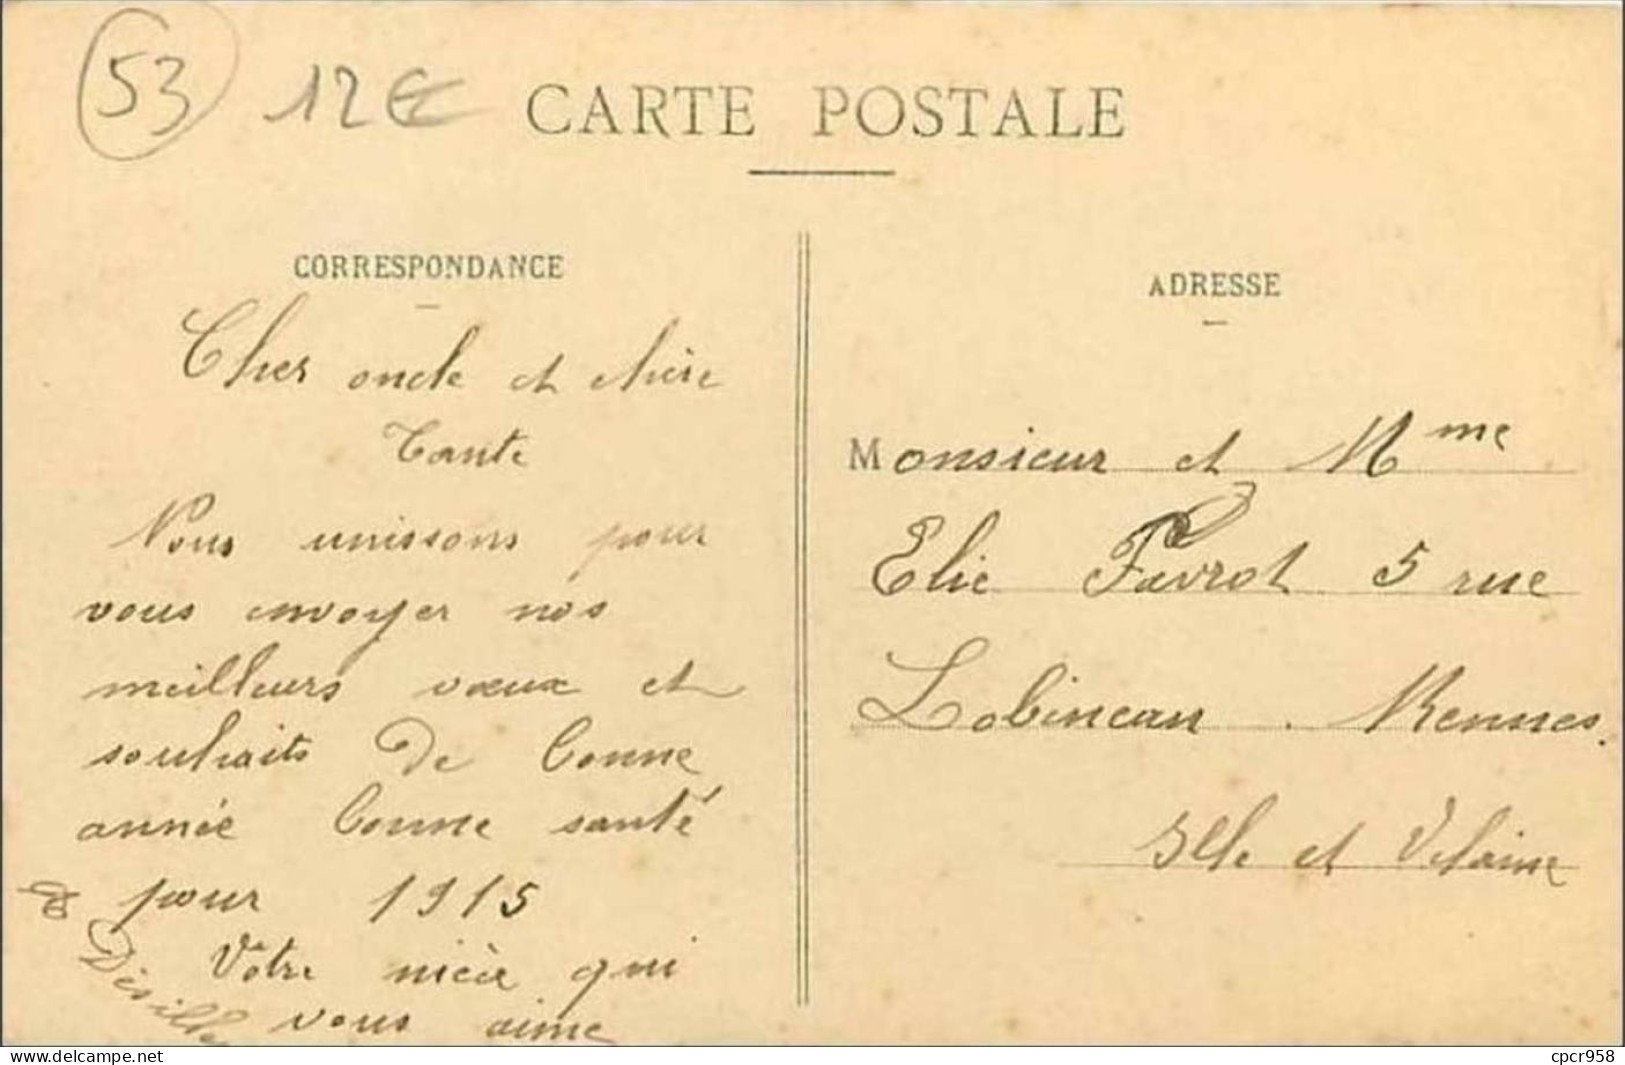 53 12€
CARTE POSTALE
CORRESPONDANCE
Cher oncle et chère
Tante
Nous unissons pour
vous envoyer nos
meilleurs vœux et
souhaits de bonne
année bonne santé
pour 1915
Votre nièce qui
vous aime
ADRESSE
Monsieur et Mme
Elie Favrot 5 rue
Lobineau. Rennes.
Ille et Vilaine
https://www.delcampe.net
cpcr958